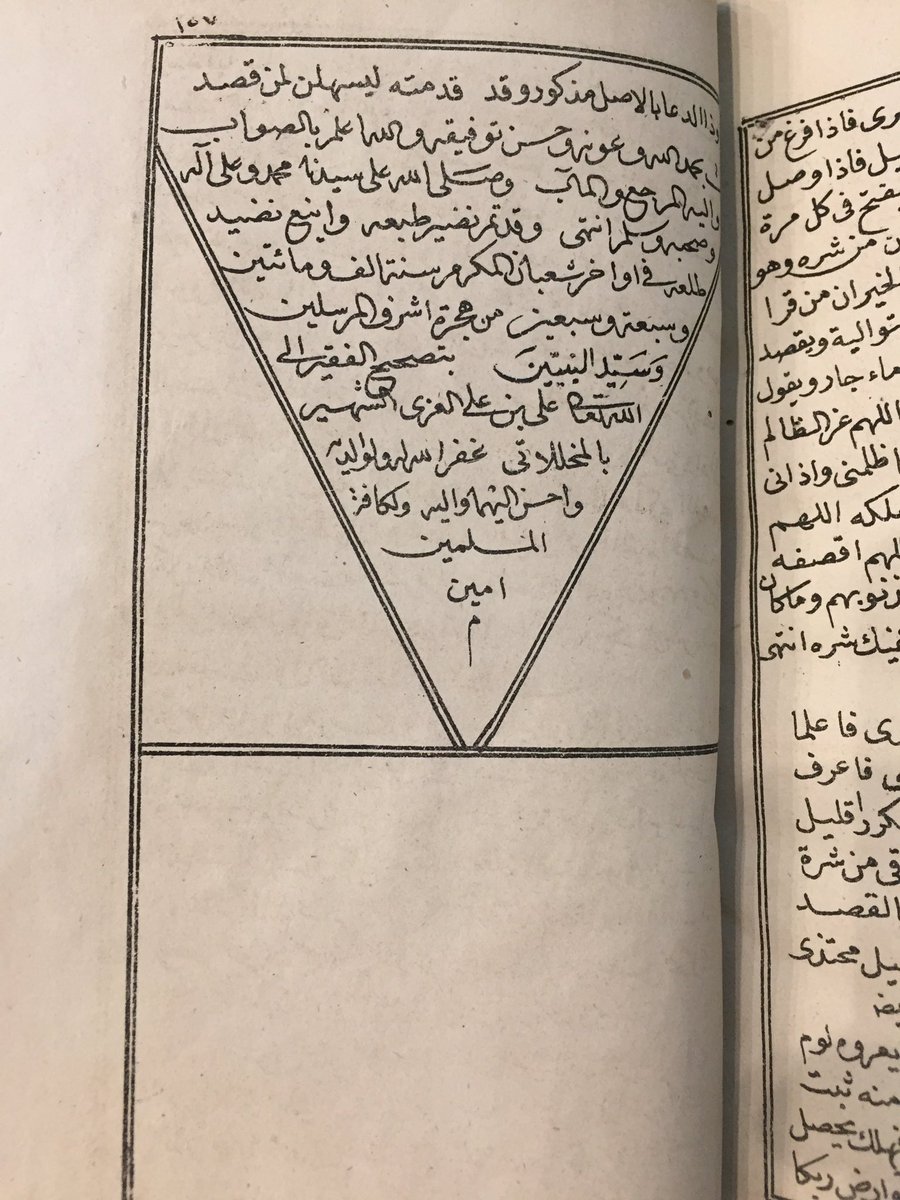 ١٥٧
وذا الدعا بالاصل مذكور وقد قدمته ليسهلن لمن قصد
بحمد الله وعونه وحسن توفيقه والله اعلم بالصواب
واليه المرجع والماب وصلى الله على سيدنا محمد وعلى آله
وصحبه وسلم انتهى وقد تم نضير طبعه واينع نضيد
طلعه في اواخر شعبان المكرم سنة الف ومائتين
وسبعة وسبعين من هجرة اشرف المرسلين
وسيد النبيين بتصحيح الفقير الى
الله تعالى على بن على الغزى الشهير
بالمخللاتى غفر الله له ولوالديه
واحسن اليهما واليه ولكافة
المسلمين
امين
م
فاذا فرغ من
فاذا وصل
يفتح فى كل مرة
من شره وهو
الخيران من قرا
متوالية ويقصد
ماء جار ويقول
اللهم عز الظالم
ظلمنى واذانى
اللهم
اللهم اقصفه
ذنوبهم وما كان
شره انتهى
فاعلما
فاعرف
قليل
من شرة
القصد
محتذى
يعروه لوم
منه ثبت
يحصل